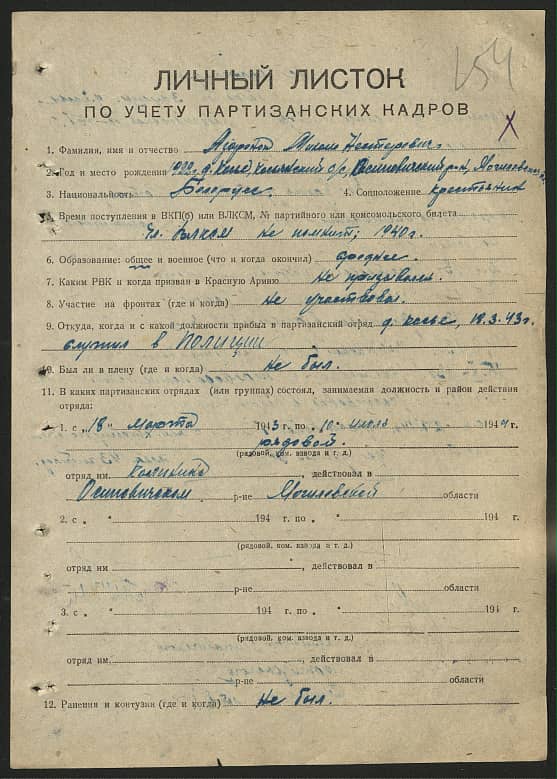 154
ЛИЧНЫЙ ЛИСТОК
ПО УЧЕТУ ПАРТИЗАНСКИХ КАДРОВ
X
1. Фамилия, имя и отчество Нестерович
2. Год и место рождения Осиповичский р-н, Могилевск
3. Национальность Белорусс. 4. Соцположение крестьянин
Время поступления в ВКП(б) или ВЛКСМ, № партийного или комсомольского билета
Чл. ВЛКСМ не помнит; 1940г.
6. Образование: общее и военное (что и когда окончил) среднее.
7. Каким РВК и когда призван в Красную Армию не призывался.
8. Участие на фронтах (где и когда) не участвовал.
9. Откуда, когда и с какой должности прибыл в партизанский отряд 18.3.43г.
служил в полиции
10. Был ли в плену (где и когда) не был.
11. В каких партизанских отрядах (или группах) состоял, занимаемая должность и район действия
отряда:
1. с „18" марта 1943 г. по „10" июль 1944 г.
рядовой.
(рядовой, ком. взвода и т. д.)
отряд им. Калинина действовал в
Осиповичском р-не Могилевской области
2. с „ " 194 г. по „ " 194 г.
(рядовой, ком. взвода и т. д.)
отряд им , действовал в
р-не области
3. с „ " 194 г. по „ " 194 г.
(рядовой, ком. взвода и т. д.)
отряд им. , действовал в
р-не области
12. Ранения и контузии (где и когда) не был.